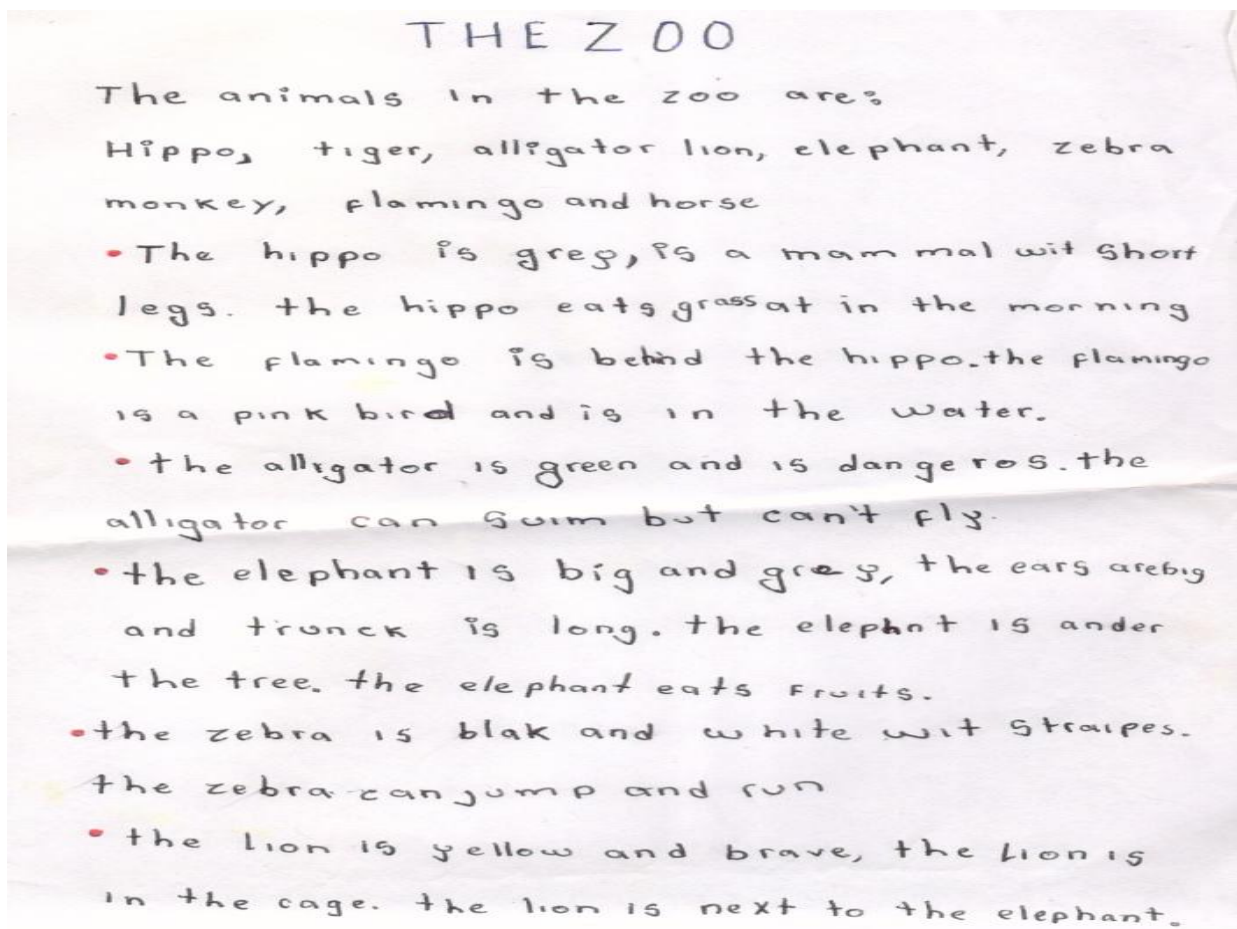 THE ZOO
The animals in the zoo are:
Hippo, tiger, alligator lion, elephant, zebra
monkey, flamingo and horse
• The hippo is grey, is a mammal wit short
legs. the hippo eats grass at in the morning
• The flamingo is behind the hippo. the flamingo
is a pink bird and is in the water.
• the alligator is green and is dangeros. the
alligator can suim but can't fly.
• the elephant is big and grey, the ears are big
and trunck is long. the elephnt is ander
the tree. the elephant eats fruits.
• the zebra is blak and white wit straipes.
the zebra can jump and run
• the lion is yellow and brave, the Lion is
in the cage. the lion is next to the elephant.